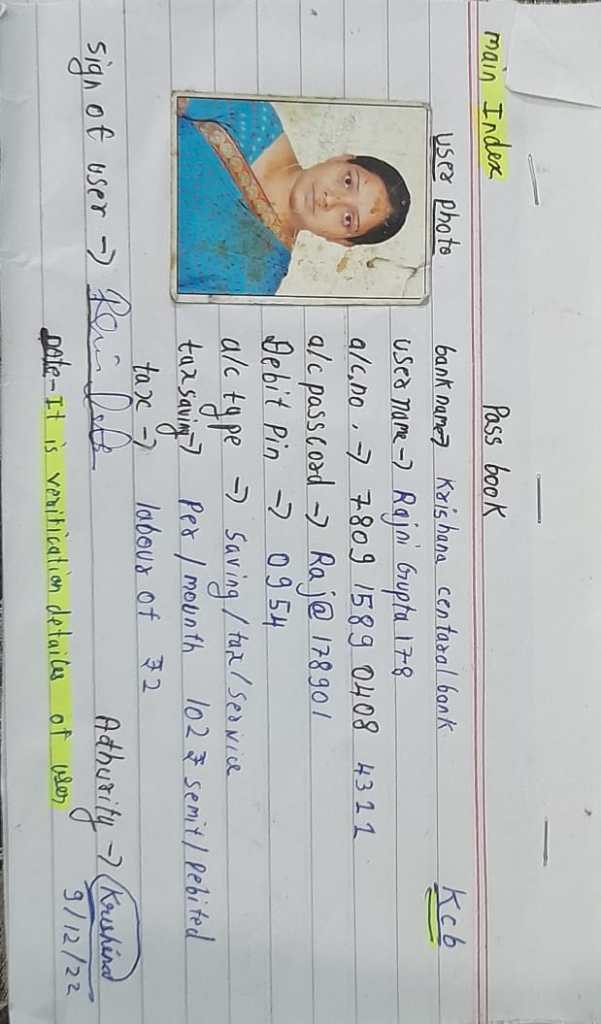 main Index
Pass book
user photo
bank name → Krishana centaral bank
Kcb
user name → Rajni Gupta 178
a/c no. → 7809 1589 0408 4311
a/c password → Raj@178901
Debit pin → 0954
a/c type → saving/tax/service
tax saving → per/mounth 102 ₹ semit/Debited
tax → labour of ₹2
sign of user →
Authurity → Krushna
9/12/22
Note- It is verification detailes of user